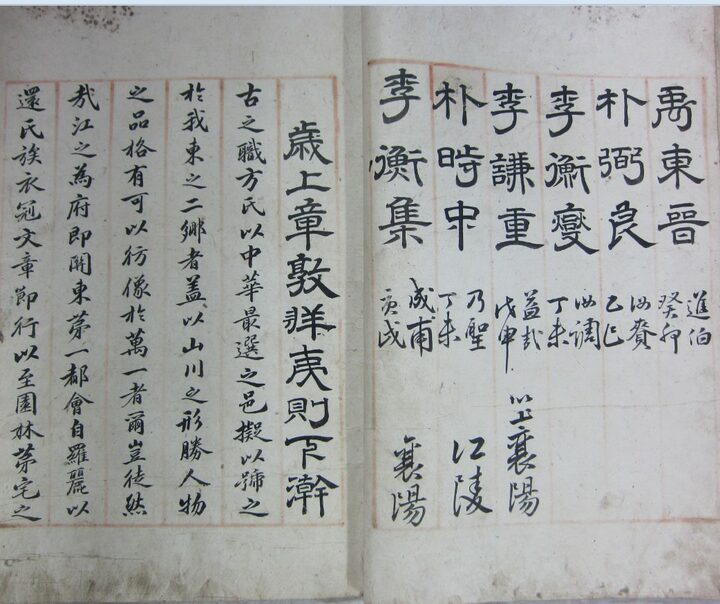 禹東晉 進伯 癸卯
朴弼良 汝賚 乙巳
李衡燮 汝調 丁未
李謙重 益哉 戊申 以上襄陽
朴時中 乃聖 丁未 江陵
李衡集 成甫 庚戌 襄陽
歲上章敦牂夷則下澣
古之職方氏以中華最選之邑擬以號之
於我東之二鄉者盖以山川之形勝人物
之品格有可以彷像於萬一者爾豈徒然
哉江之為府即関東苐一都會自羅麗以
還氏族衣冠文章節行以至園林苐宅之